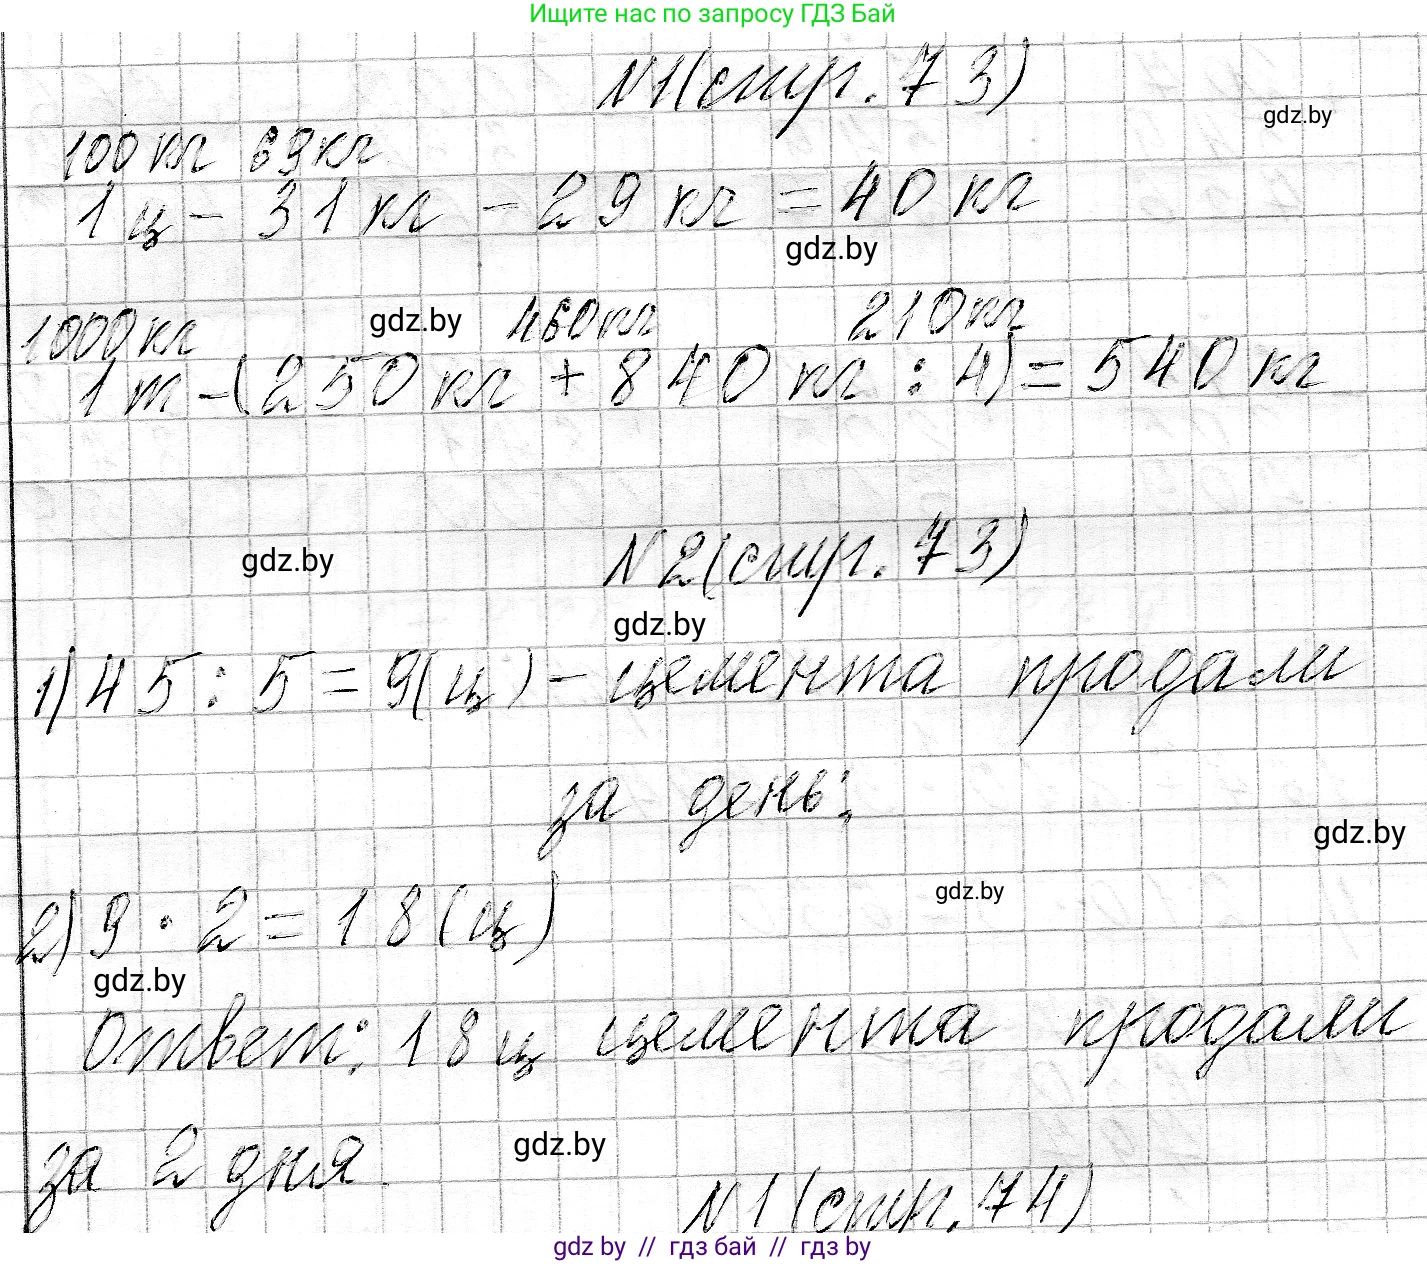 Ищите нас по запросу ГДЗ Бай
№1(стр. 73)
gdz.by
100 кг 69 кг
1 ц - 31 кг - 29 кг = 40 кг
gdz.by
1000 кг gdz.by 460 кг 210 кг
1 т - (250 кг + 840 кг : 4) = 540 кг
gdz.by №2(стр. 73)
gdz.by
1) 45 : 5 = 9(ц) - цемента продали
за день;
gdz.by
gdz.by
2) 9 · 2 = 18(ц)
gdz.by
Ответ: 18 ц цемента продали
за 2 дня.
gdz.by
№1(стр. 74)
gdz by // гдз бай // гдз by